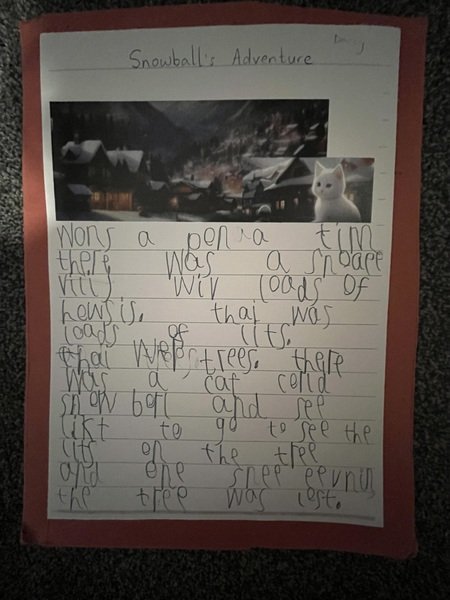 Snowball's Adventure
wons a pon a tim
there was a snoaee
vilij wiv loads of
howsis. that was
loads of lits.
that wer trees. there
was a cat cond
snow borl and see
likt to go to see the
lits on the tree
and one snee eevnin
the tree was lost.